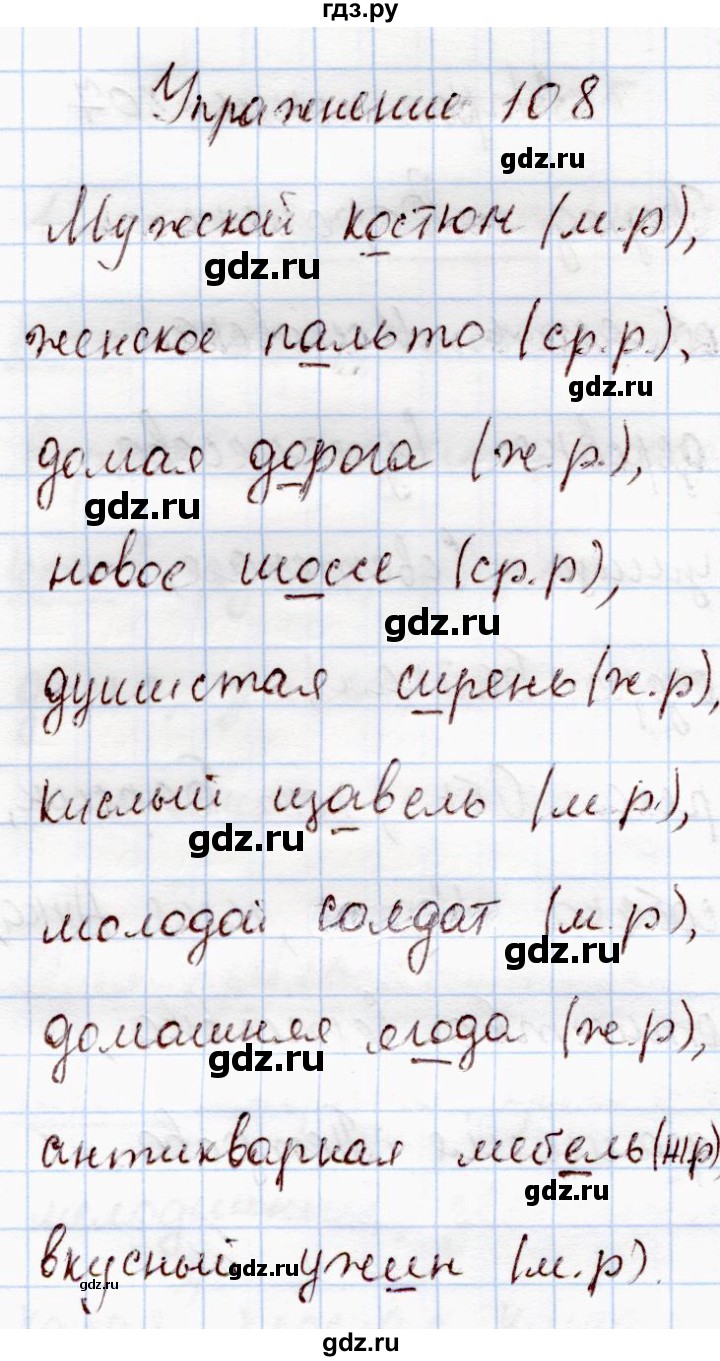 гдз.ру
Упражнение 108
gdz.ru
Мужской костюм (м.р),
gdz.ru
женское пальто (ср.р.),
gdz.ru
домая дорога (ж.р.),
gdz.ru
новое шоссе (ср.р),
gdz.ru
душистая сирень (ж.р),
кислый щавель (м.р.),
gdz.ru
молодой солдат (м.р),
gdz.ru
домашняя ягода (ж.р),
gdz.ru
антикварная мебель (ж.р),
gdz.ru
вкусный ужин (м.р).
gdz.ru
gdz.ru
gdz.ru